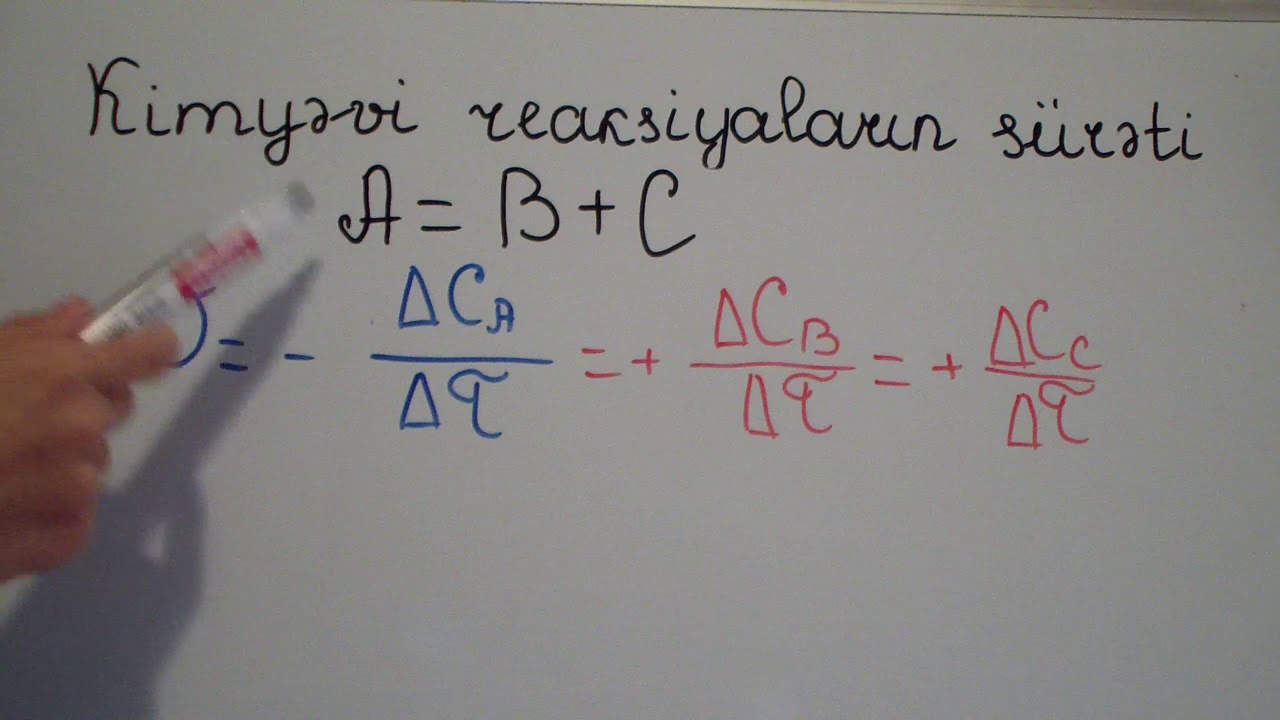 Kimyəvi reaksiyaların sürəti
A = B + C
= - ΔC_A/Δτ = + ΔC_B/Δτ = + ΔC_C/Δτ